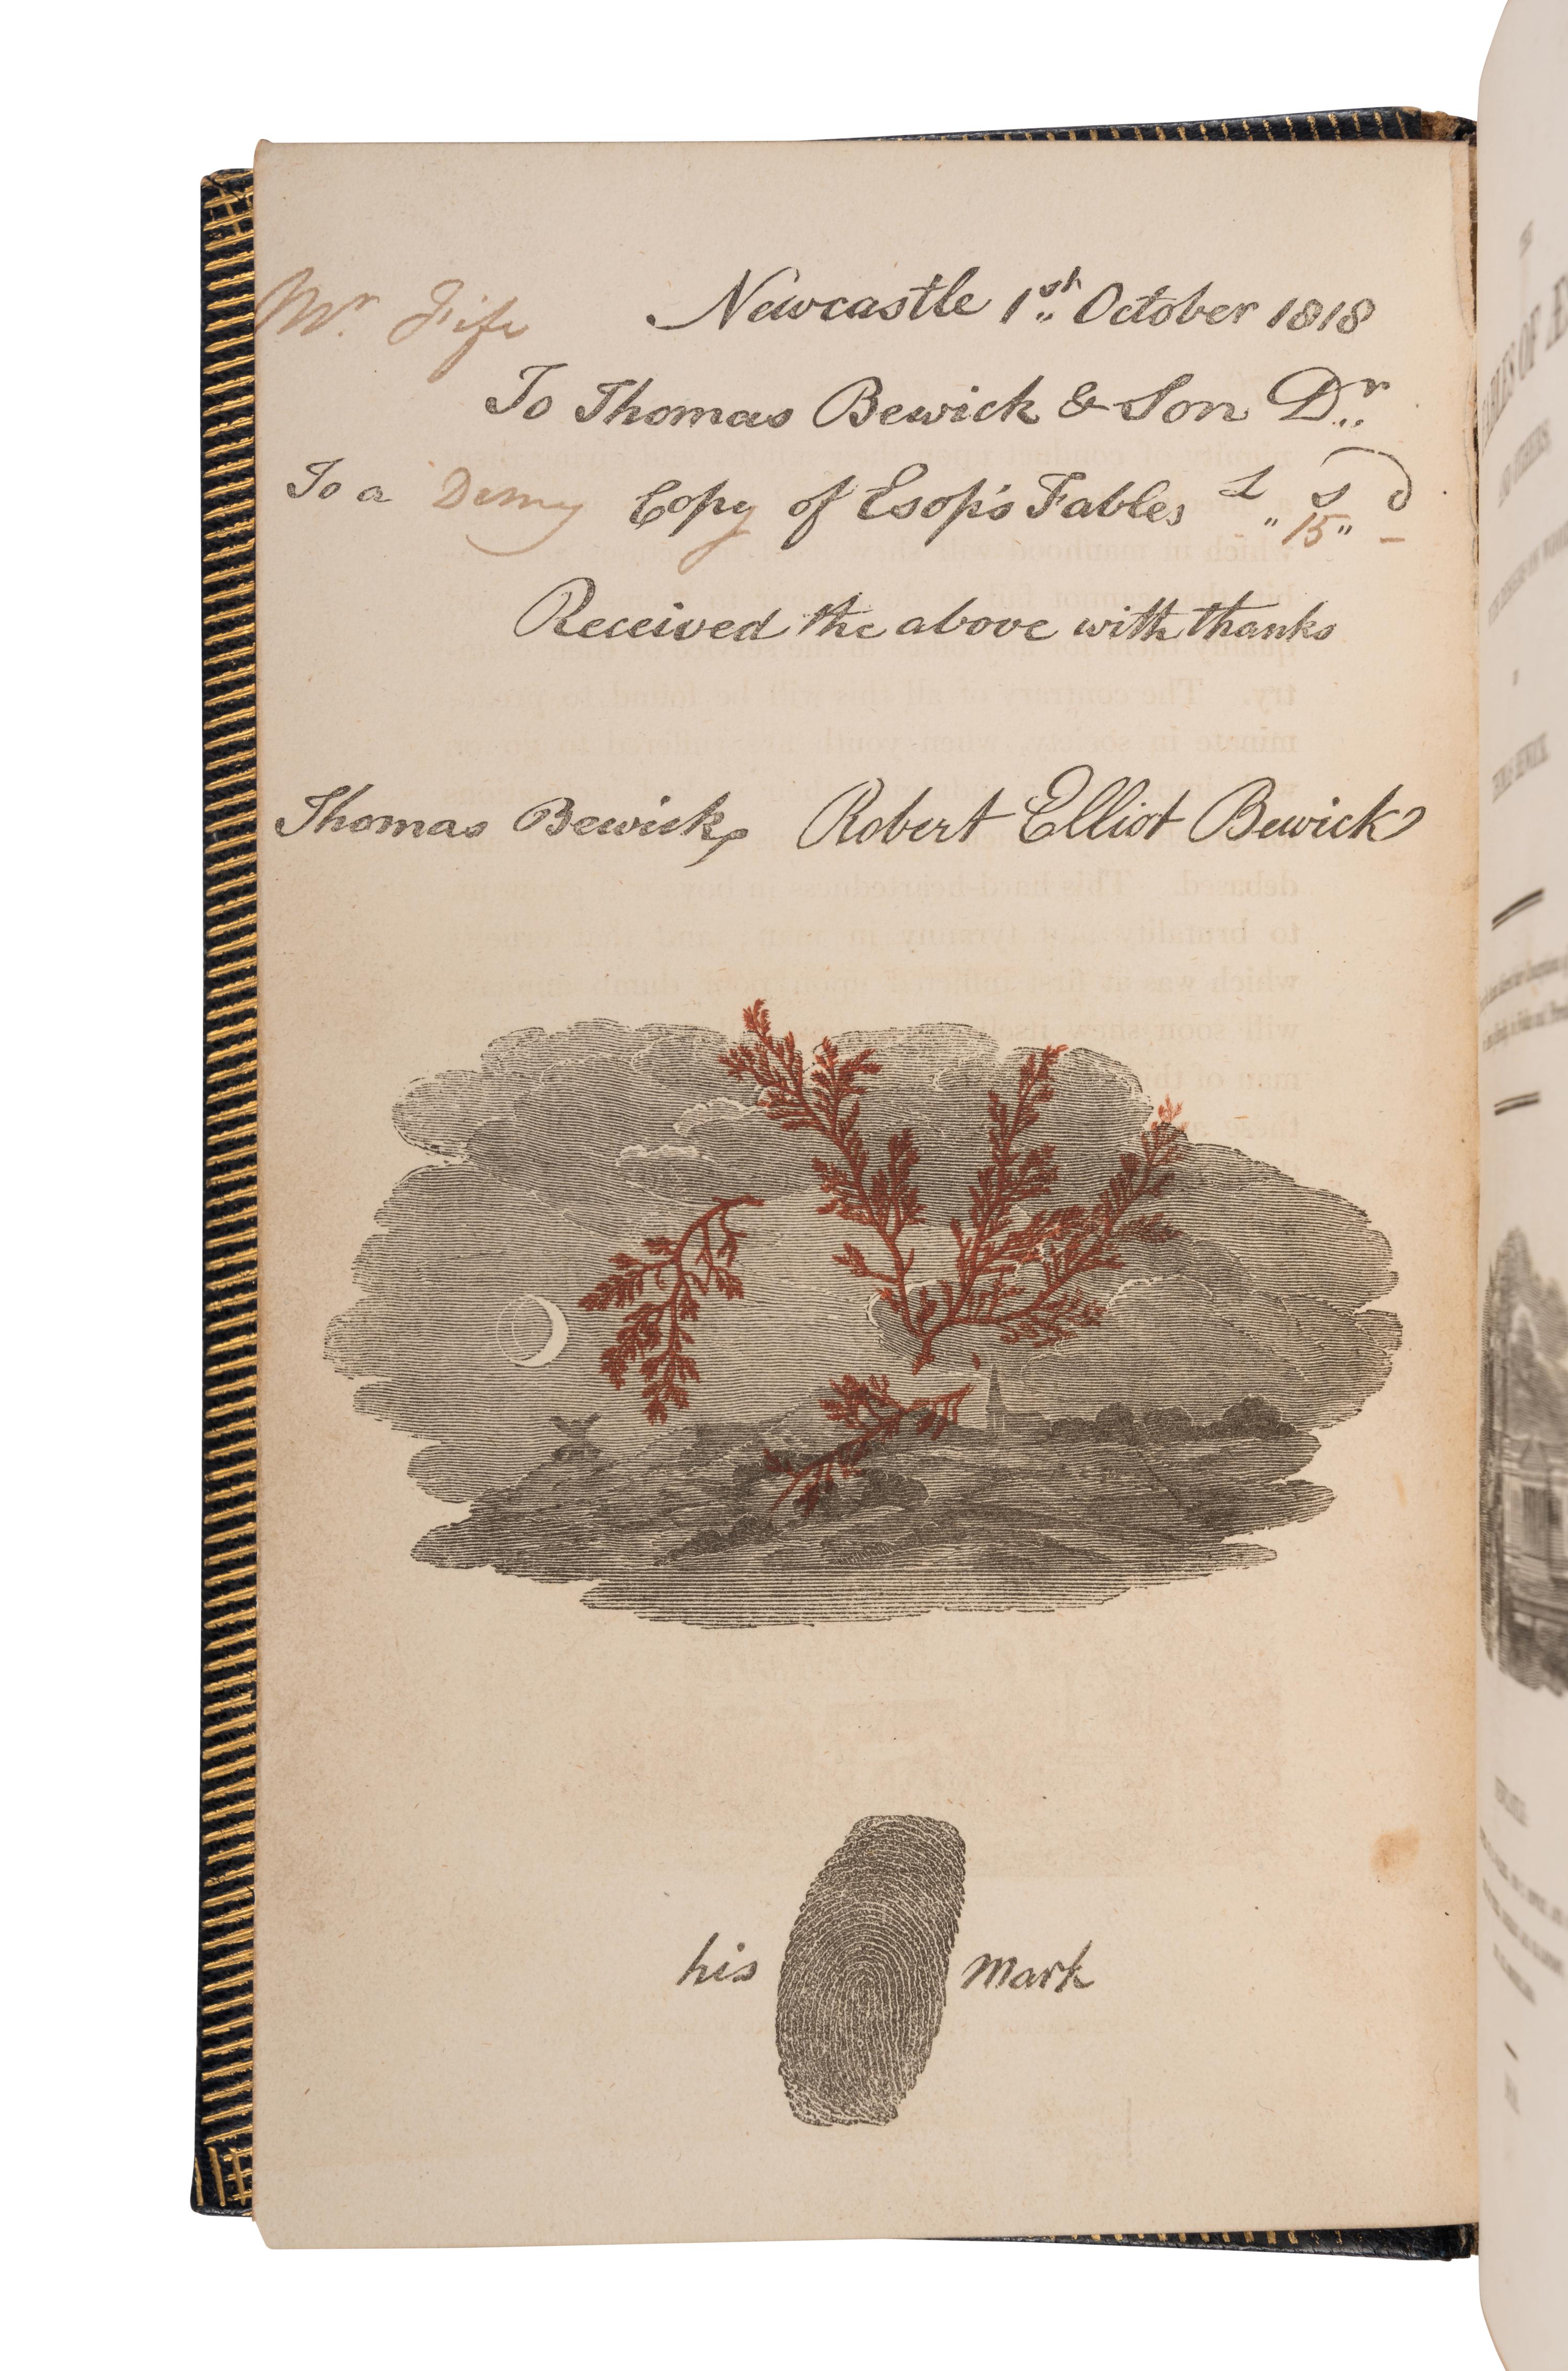 Mr. Fife Newcastle 1st October 1818
To Thomas Bewick & Son Dr.
To a Demy Copy of Esop's Fables £ s d
" 15 " –
Received the above with thanks
Thomas Bewick, Robert Elliot Bewick
his mark
FABLES OF